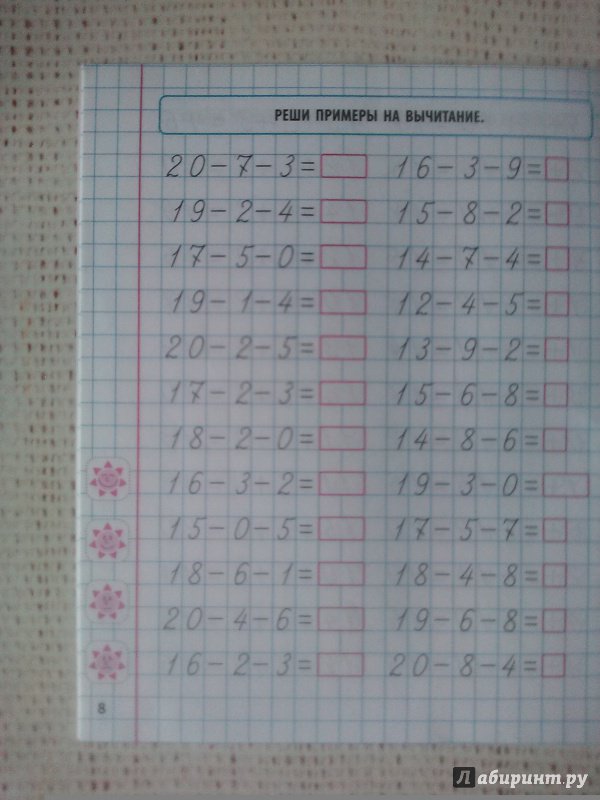 РЕШИ ПРИМЕРЫ НА ВЫЧИТАНИЕ.
20-7-3= 16-3-9=
19-2-4= 15-8-2=
17-5-0= 14-7-4=
19-1-4= 12-4-5=
20-2-5= 13-9-2=
17-2-3= 15-6-8=
18-2-0= 14-8-6=
16-3-2= 19-3-0=
15-0-5= 17-5-7=
18-6-1= 18-4-8=
20-4-6= 19-6-8=
16-2-3= 20-8-4=
8
Лабиринт.ру